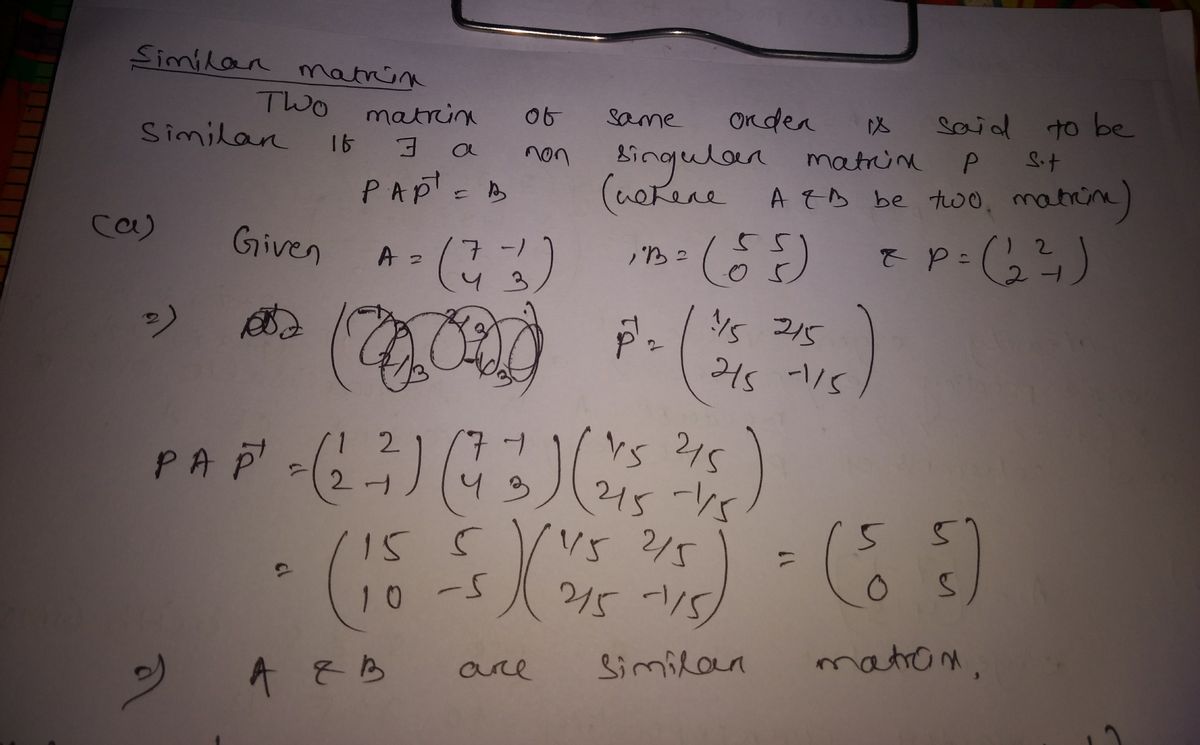 Similar matrix
Two matrix of same order is said to be
Similar if ∃ a non singular matrix P s.t
PAP⁻¹ = B (where A & B be two matrix)
(a) Given A = (7 -1; 4 3) , B = (5 5; 0 5) & P = (1 2; 2 -1)
⇒) P⁻¹ = (1/5 2/5; 2/5 -1/5)
PAP⁻¹ = (1 2; 2 -1) (7 -1; 4 3) (1/5 2/5; 2/5 -1/5)
= (15 5; 10 -5) (1/5 2/5; 2/5 -1/5) = (5 5; 0 5)
⇒) A & B are similar matrix.